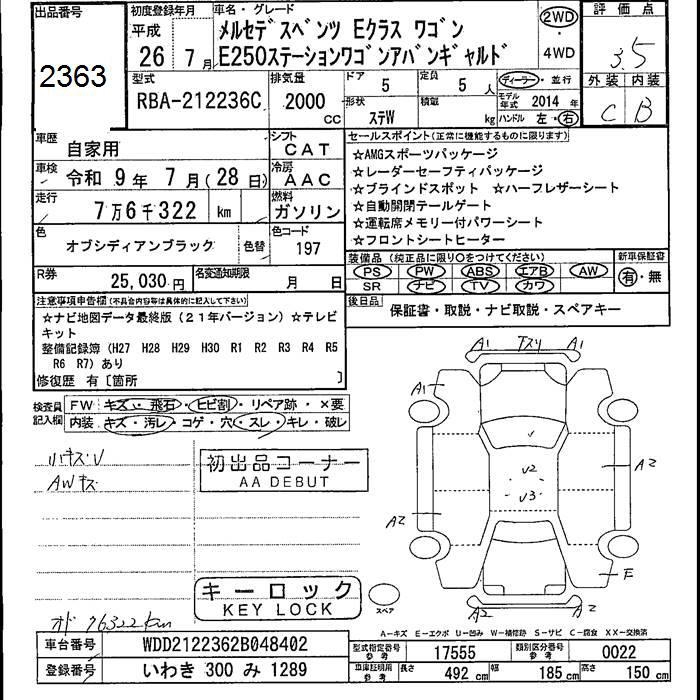 出品番号
2363
初度登録年月
平成
26 年 7 月
車名・グレード
メルセデスベンツ Eクラス ワゴン
E250ステーションワゴンアバンギャルド
2WD
・
4WD
評価点
3.5
外装 内装
C B
型式
RBA-212236C
排気量
2000
cc
ドア
5
定員
5 人
形状
ステW
積載
kg
ディーラー・並行
モデル年式 2014 年
ハンドル 左・右
車歴
自家用
シフト
CAT
車検
令和 9年 7月(28日)
冷房
AAC
走行
7万6千322 km
燃料
ガソリン
色
オブシディアンブラック
色替
色コード
197
R券
25,030 円
名変通知期限
月 日
セールスポイント(正常に機能するものに限ります)
☆AMGスポーツパッケージ
☆レーダーセーフティパッケージ
☆ブラインドスポット ☆ハーフレザーシート
☆自動開閉テールゲート
☆運転席メモリー付パワーシート
☆フロントシートヒーター
装備品(純正品に限り○をつけてください)
PS PW ABS エアB AW
SR ナビ TV カワ
新車保証書
有・無
後日品
保証書・取説・ナビ取説・スペアキー
注意事項申告欄(不具合内容等は具体的に記入して下さい)
☆ナビ地図データ最終版(21年バージョン)☆テレビ
キット
整備記録簿(H27 H28 H29 H30 R1 R2 R3 R4 R5
R6 R7)あり
修復歴 有〔箇所 〕
検査員
記入欄
FW キズ・飛石・ヒビ割・リペア跡・×要
内装 キズ・汚レ・コゲ・穴・スレ・キレ・破レ
ハキズU
AWキズ
初出品コーナー
AA DEBUT
キーロック
KEY LOCK
スペア
オド 76322km
A1 下スリ A1
A1
U2
U3
A2
A2
F
A2 A2
A-キズ E-エクボ U-凹み W-補修跡 S-サビ C-腐食 XX-交換済
車台番号
WDD2122362B048402
登録番号
いわき 300 み 1289
型式指定番号
参考
17555
類別区分番号
参考
0022
車庫証明用
参考
長さ 492 cm
幅 185 cm
高さ 150 cm